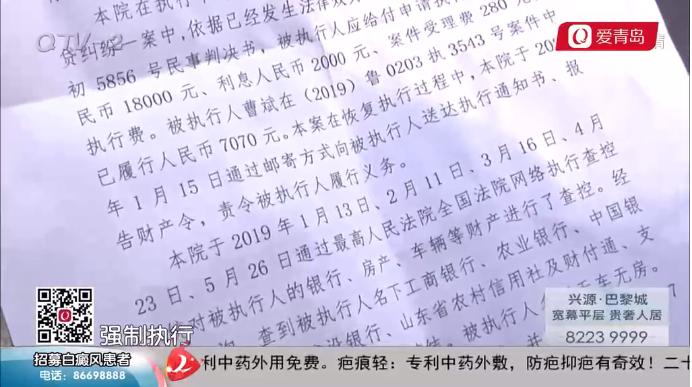 本院在执行
贷纠纷一案中,依据已经发生法律效
初 5856 号民事判决书,被执行人应给付申请执
民币 18000 元、利息人民币 2000 元、案件受理费 280 元
执行费。被执行人曹斌在(2019)鲁 0203 执 3543 号案件中
已履行人民币 7070 元。本案在恢复执行过程中,本院于 20
年 1 月 15 日通过邮寄方式向被执行人送达执行通知书、报
告财产令,责令被执行人履行义务。
本院于 2019 年 1 月 13 日、2 月 11 日、3 月 16 日、4 月
23 日、5 月 26 日通过最高人民法院全国法院网络执行查控
对被执行人的银行、房产、车辆等财产进行了查控。经
查到被执行人名下工商银行、农业银行、中国银
设银行、山东省农村信用社及财付通、支
被执行人
车无房。
QTV-2
爱青岛
兴源·巴黎城
宽幕平层 贵奢人居
8223 9999
强制执行
招募白癜风患者
电话:86698888
利中药外用免费。疤痕轻:专利中药外敷,防疤抑疤有奇效!二十